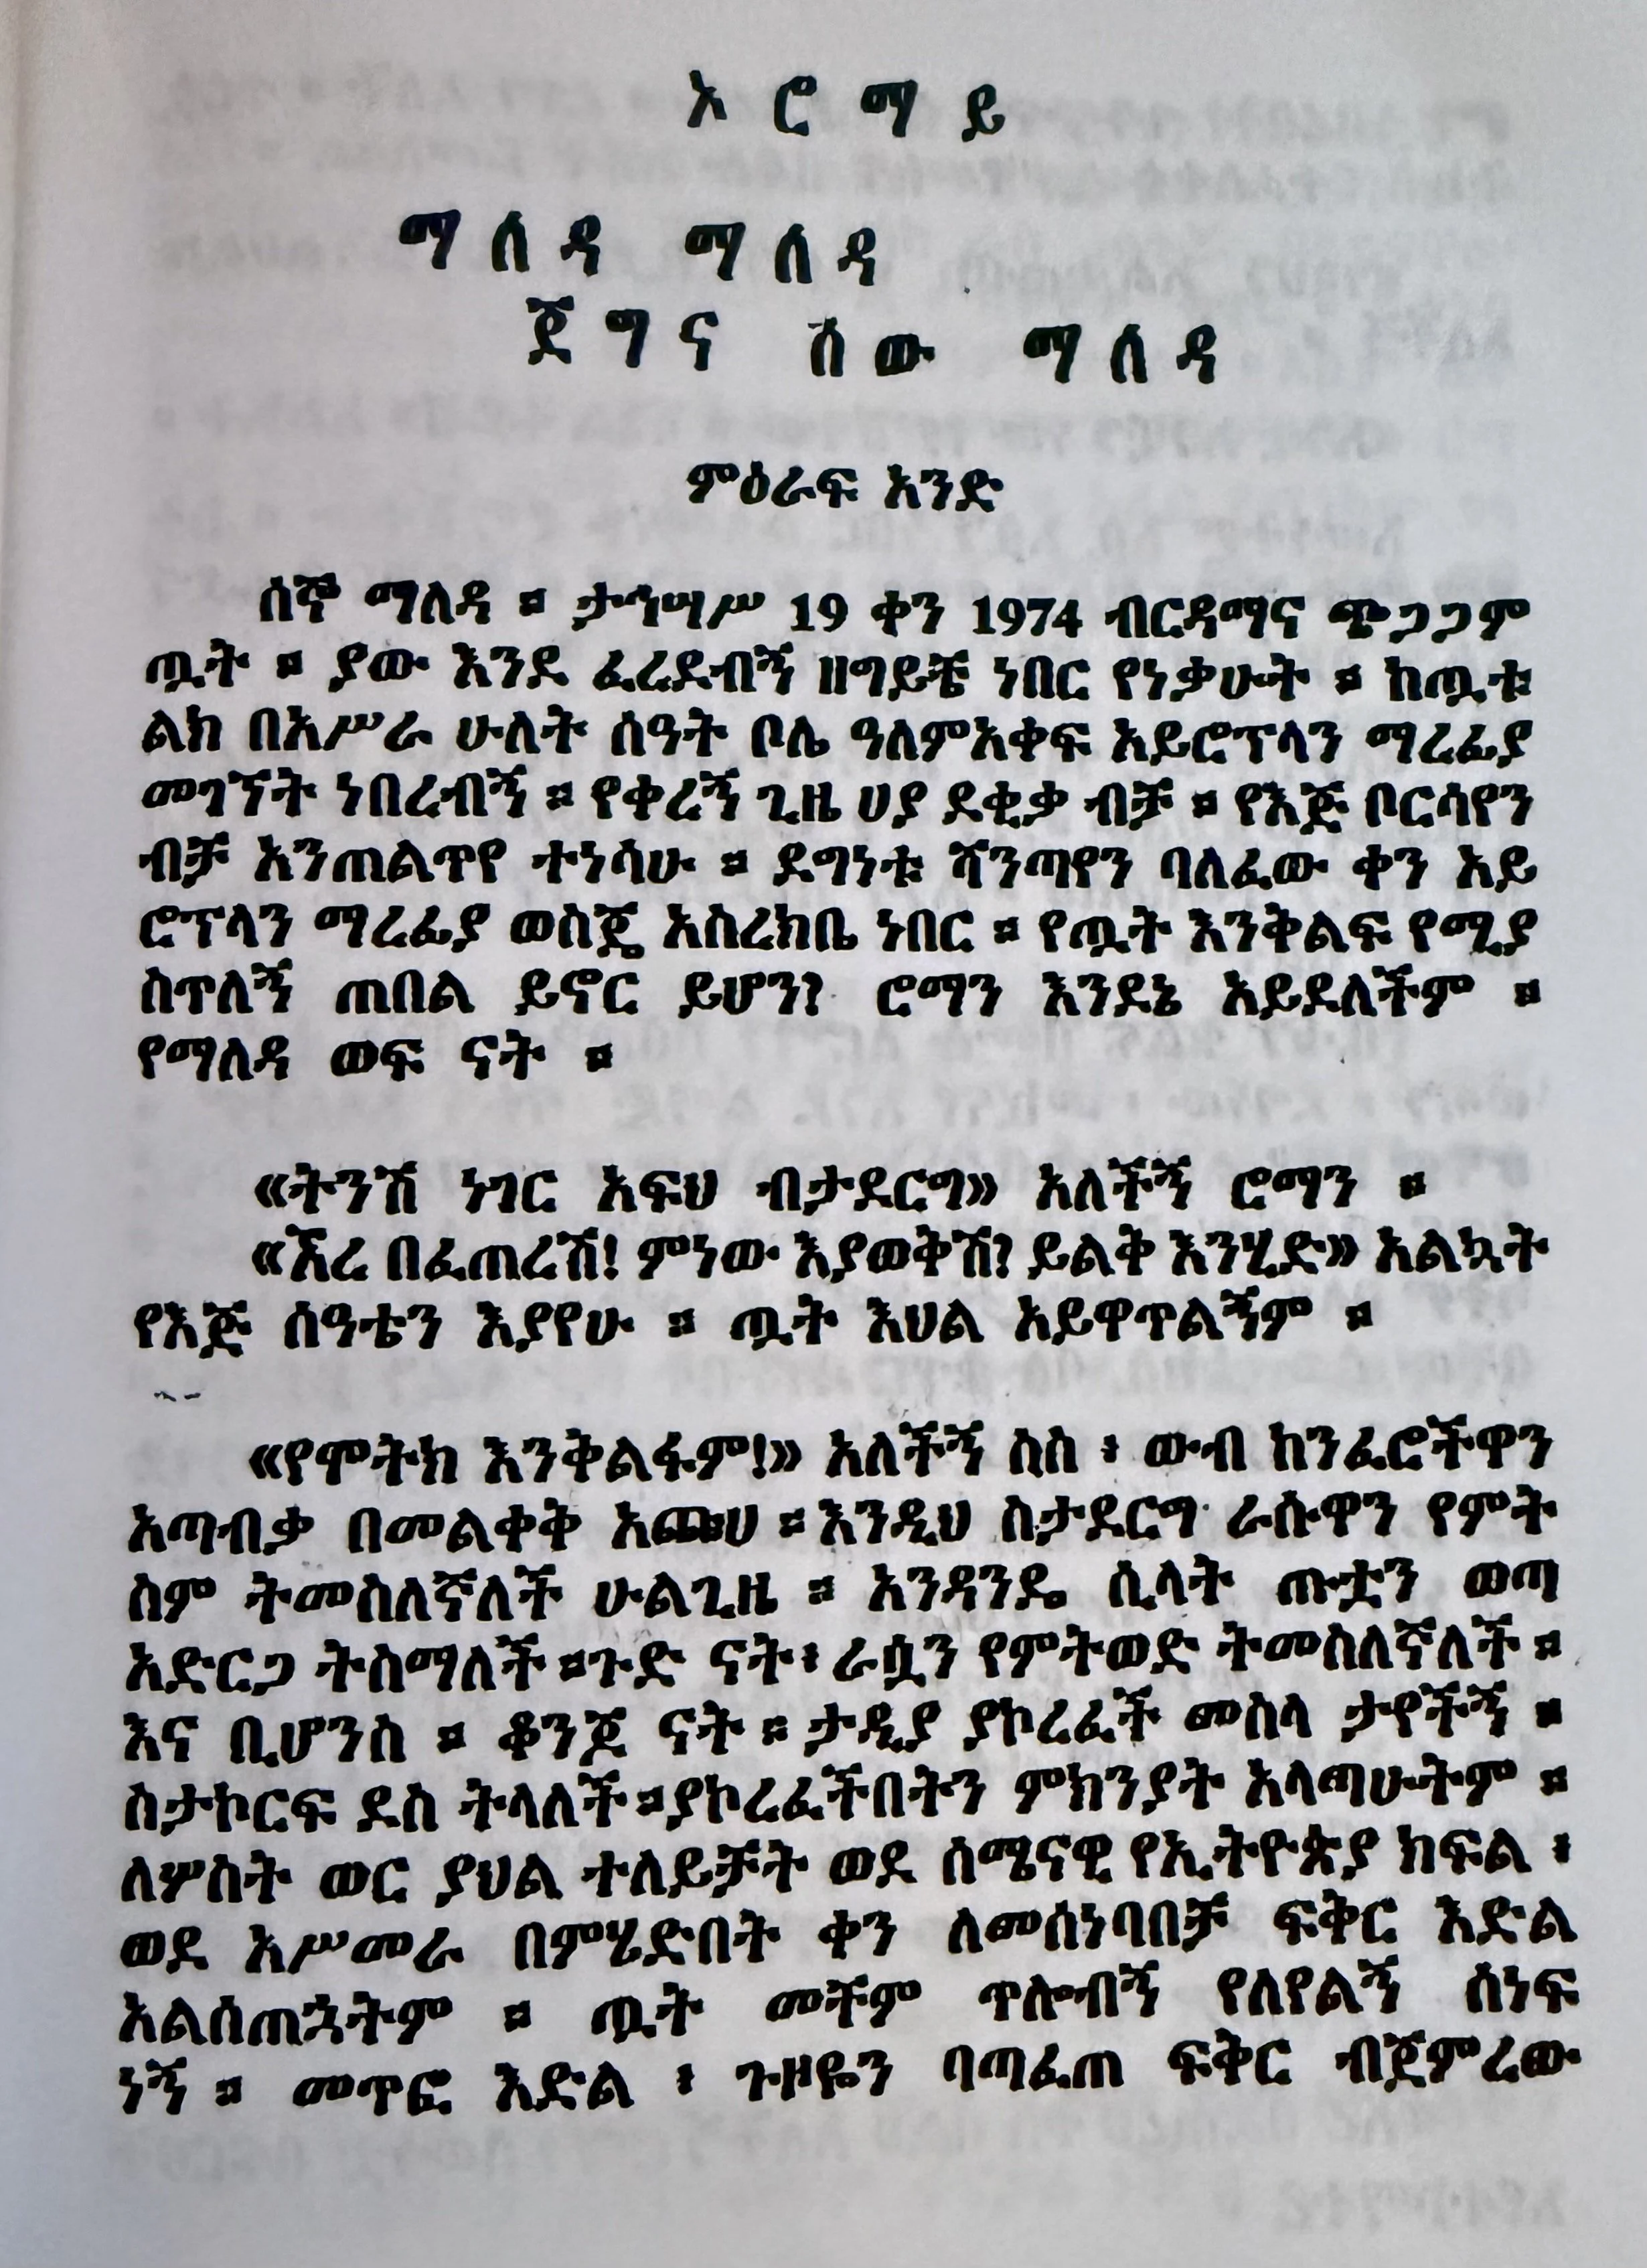 ኦ ሮ ማ ይ
ማ ለ ዳ ማ ለ ዳ
ጀ ግ ና ሰ ው ማ ለ ዳ
ምዕራፍ አንድ
ሰኞ ማለዳ ። ታኅሣሥ 19 ቀን 1974 ብርዳማና ጭጋጋም
ጧት ። ያው እንደ ፈረደብኝ ዘግይቼ ነበር የነቃሁት ። ከጧቱ
ልክ በአሥራ ሁለት ሰዓት ቦሌ ዓለምአቀፍ አይሮፕላን ማረፊያ
መገኘት ነበረብኝ ። የቀረኝ ጊዜ ሀያ ደቂቃ ብቻ ። የእጅ ቦርሳዬን
ብቻ አንጠልጥዬ ተነሳሁ ። ደግነቱ ሻንጣዬን ባለፈው ቀን አይ
ሮፕላን ማረፊያ ወስጄ አስረክቤ ነበር ። የጧት እንቅልፍ የሚያ
ስጥለኝ ጠበል ይኖር ይሆን? ሮማን እንደኔ አይደለችም ።
የማለዳ ወፍ ናት ።
«ትንሽ ነገር አፍህ ብታደርግ» አለችኝ ሮማን ።
«ኧረ በፈጠረሽ! ምነው እያወቅሽ? ይልቅ እንሂድ» አልኳት
የእጅ ሰዓቴን እያየሁ ። ጧት እህል አይዋጥልኝም ።
«የሞትክ እንቅልፋም!» አለችኝ ስስ ፥ ውብ ከንፈሮችዋን
አጣብቃ በመልቀቅ አጩሀ ። እንዲህ ስታደርግ ራሱዋን የምት
ስም ትመስለኛለች ሁልጊዜ ። አንዳንዴ ሲላት ጡቷን ወጣ
አድርጋ ትስማለች ። ጉድ ናት ፥ ራሷን የምትወድ ትመስለኛለች ።
እና ቢሆንስ ። ቆንጆ ናት ። ታዲያ ያኮረፈች መስላ ታየችኝ ።
ስታኮርፍ ደስ ትላለች ። ያኮረፈችበትን ምክንያት አላጣሁትም ።
ለሦስት ወር ያህል ተለይቻት ወደ ሰሜናዊ የኢትዮጵያ ክፍል ፥
ወደ አሥመራ በምሄድበት ቀን ለመሰነባበቻ ፍቅር እድል
አልሰጠኋትም ። ጧት መቸም ጥሎብኝ የለየልኝ ሰነፍ
ነኝ ። መጥፎ እድል ፥ ጉዞዬን ባጣፈጠ ፍቅር ብጀምረው